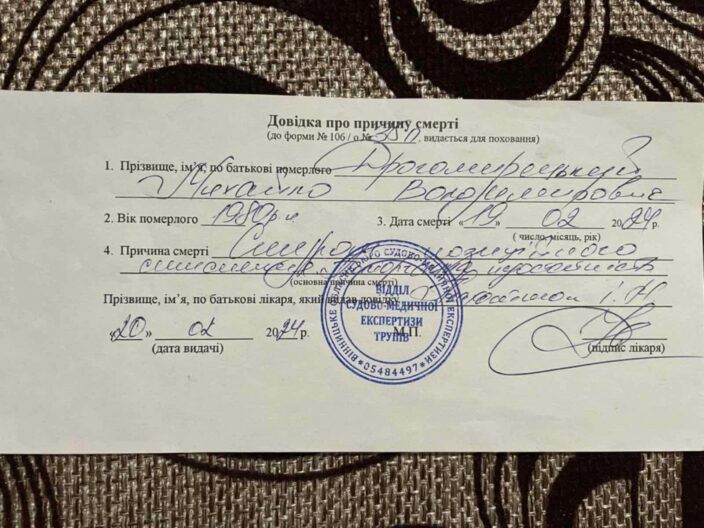 Довідка про причину смерті
(до форми № 106 / о № 35 П, видається для поховання)
1. Прізвище, ім'я, по батькові померлого
Михайло Володимирович
2. Вік померлого 1980 рн 3. Дата смерті «19» 02 2024 р.
( число, місяць, рік)
4. Причина смерті
(основна причина смерті)
Прізвище, ім'я, по батькові лікаря, який видав довідку
«20» 02 2024 р. М.П.
(дата видачі) (підпис лікаря)
ВІННИЦЬКЕ ОБЛАСНЕ БЮРО СУДОВО-МЕДИЧНОЇ ЕКСПЕРТИЗИ
*05484497*
ВІДДІЛ
СУДОВО-МЕДИЧНОЇ
ЕКСПЕРТИЗИ
ТРУПІВ